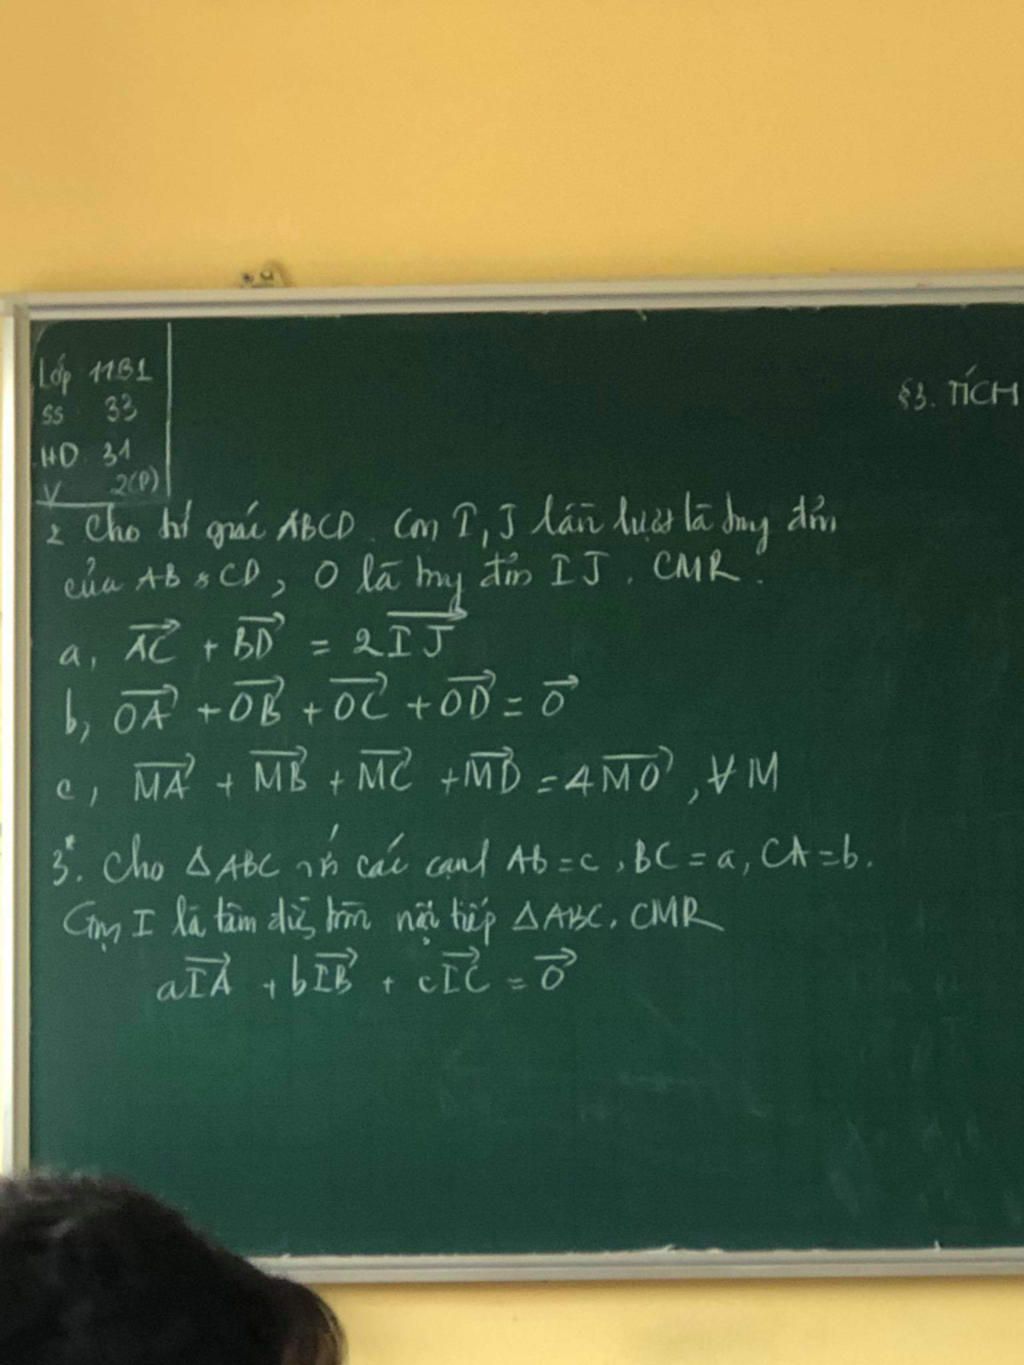 Lớp 11B1
SS 33
HD 31
V 2(P)
§3. TÍCH
2 Cho tứ giác ABCD. Gọi I, J lần lượt là trung điểm
của AB & CD, O là trung điểm IJ. CMR.
a, \overrightarrow{AC} + \overrightarrow{BD} = 2\overrightarrow{IJ}
b, \overrightarrow{OA} + \overrightarrow{OB} + \overrightarrow{OC} + \overrightarrow{OD} = \overrightarrow{O}
c, \overrightarrow{MA} + \overrightarrow{MB} + \overrightarrow{MC} + \overrightarrow{MD} = 4\overrightarrow{MO}, ∀M
3*. Cho △ABC với các cạnh Ab = c, BC = a, CA = b.
Gọi I là tâm đường tròn nội tiếp △ABC. CMR
a\overrightarrow{IA} + b\overrightarrow{IB} + c\overrightarrow{IC} = \overrightarrow{O}